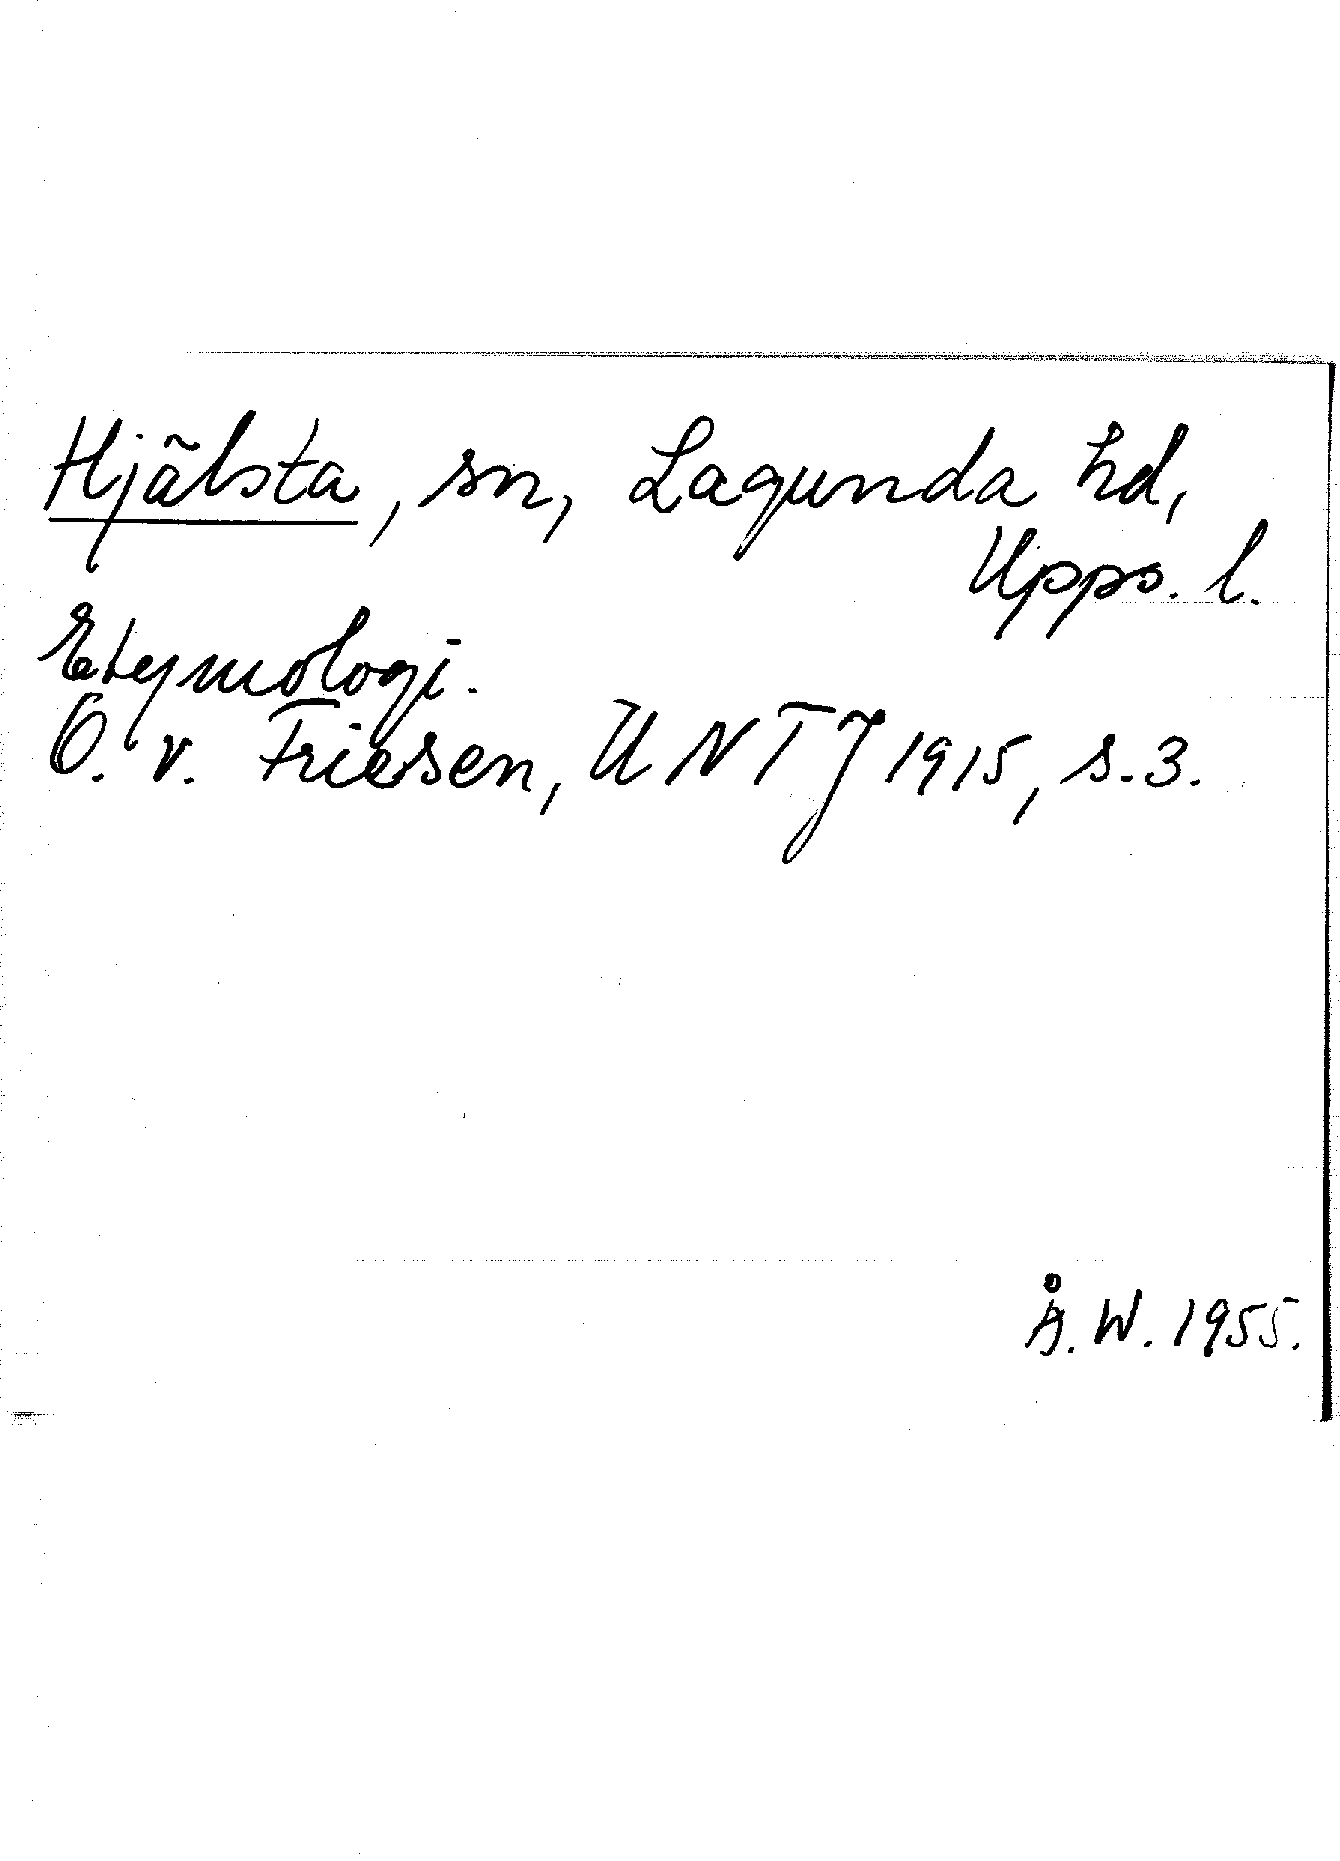 Hjälsta, sn, Lagunda hd,
Upps. l.
Etymologi.
O. v. Friesen, UNTJ 1915, s. 3.
Å. W. 1955.